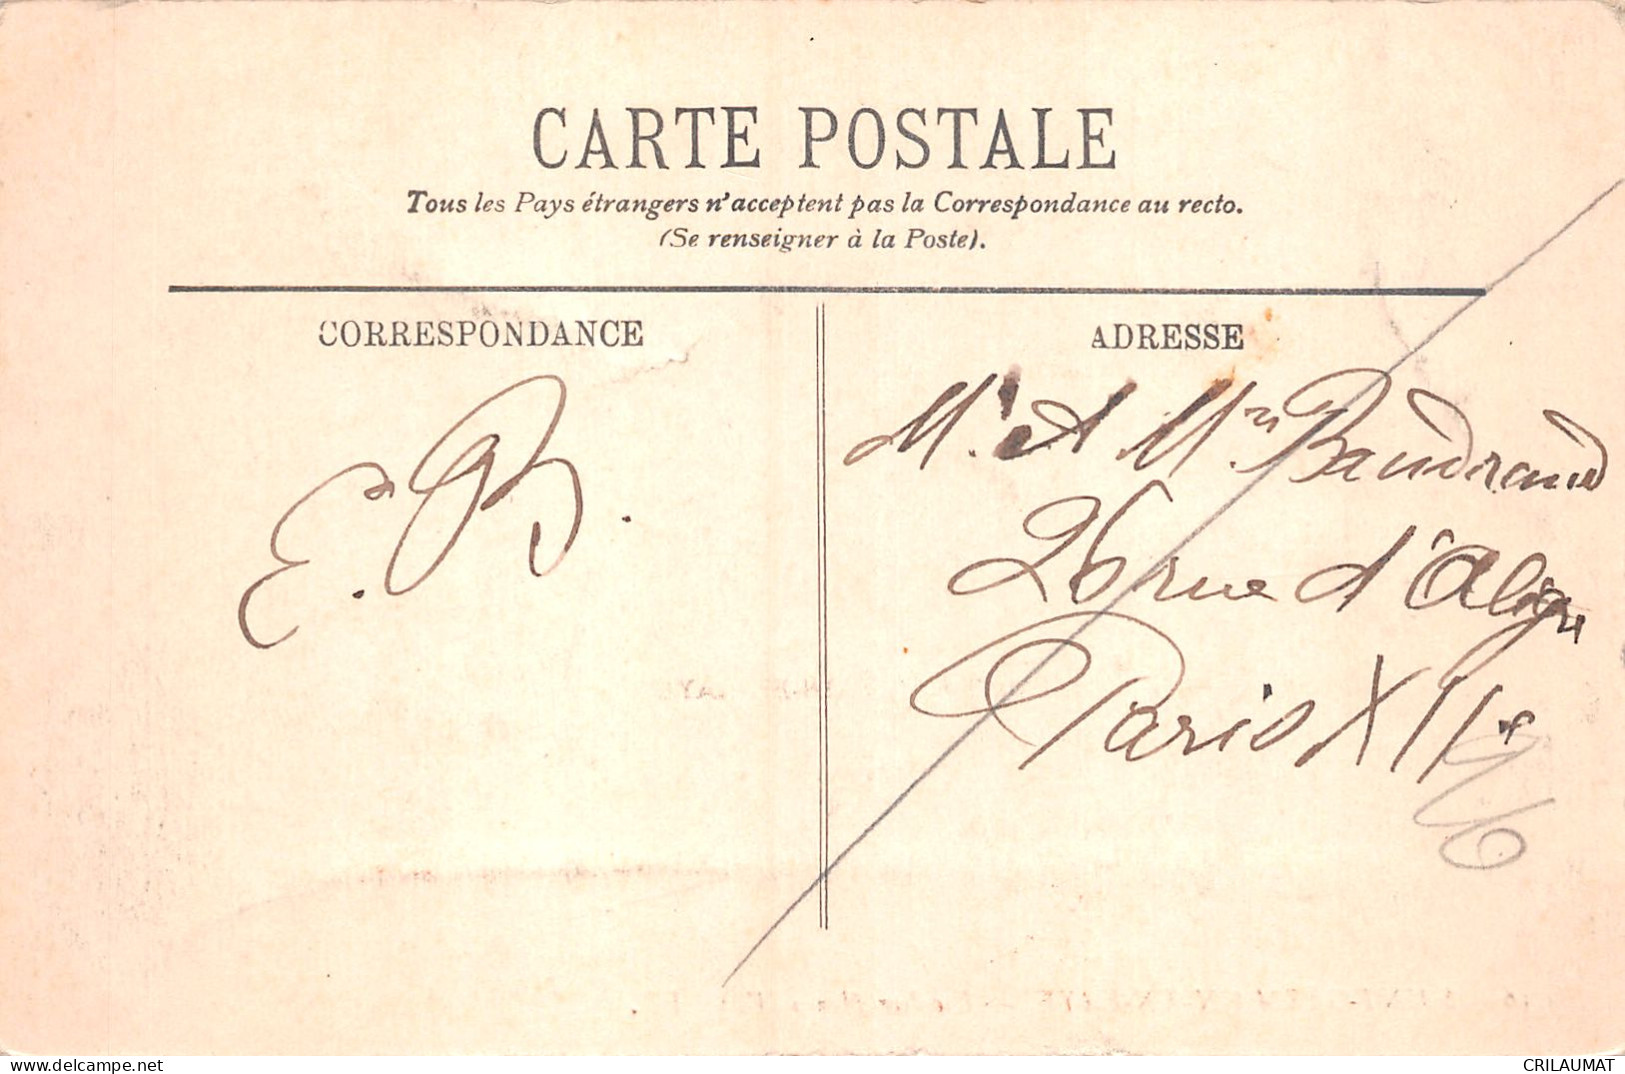 CARTE POSTALE
Tous les Pays étrangers n'acceptent pas la Correspondance au recto.
(Se renseigner à la Poste).
CORRESPONDANCE
ADRESSE
E. B.
Mr. et Mme Baudrand
26 rue d'Aligre
Paris XIIe
CRILAUMAT